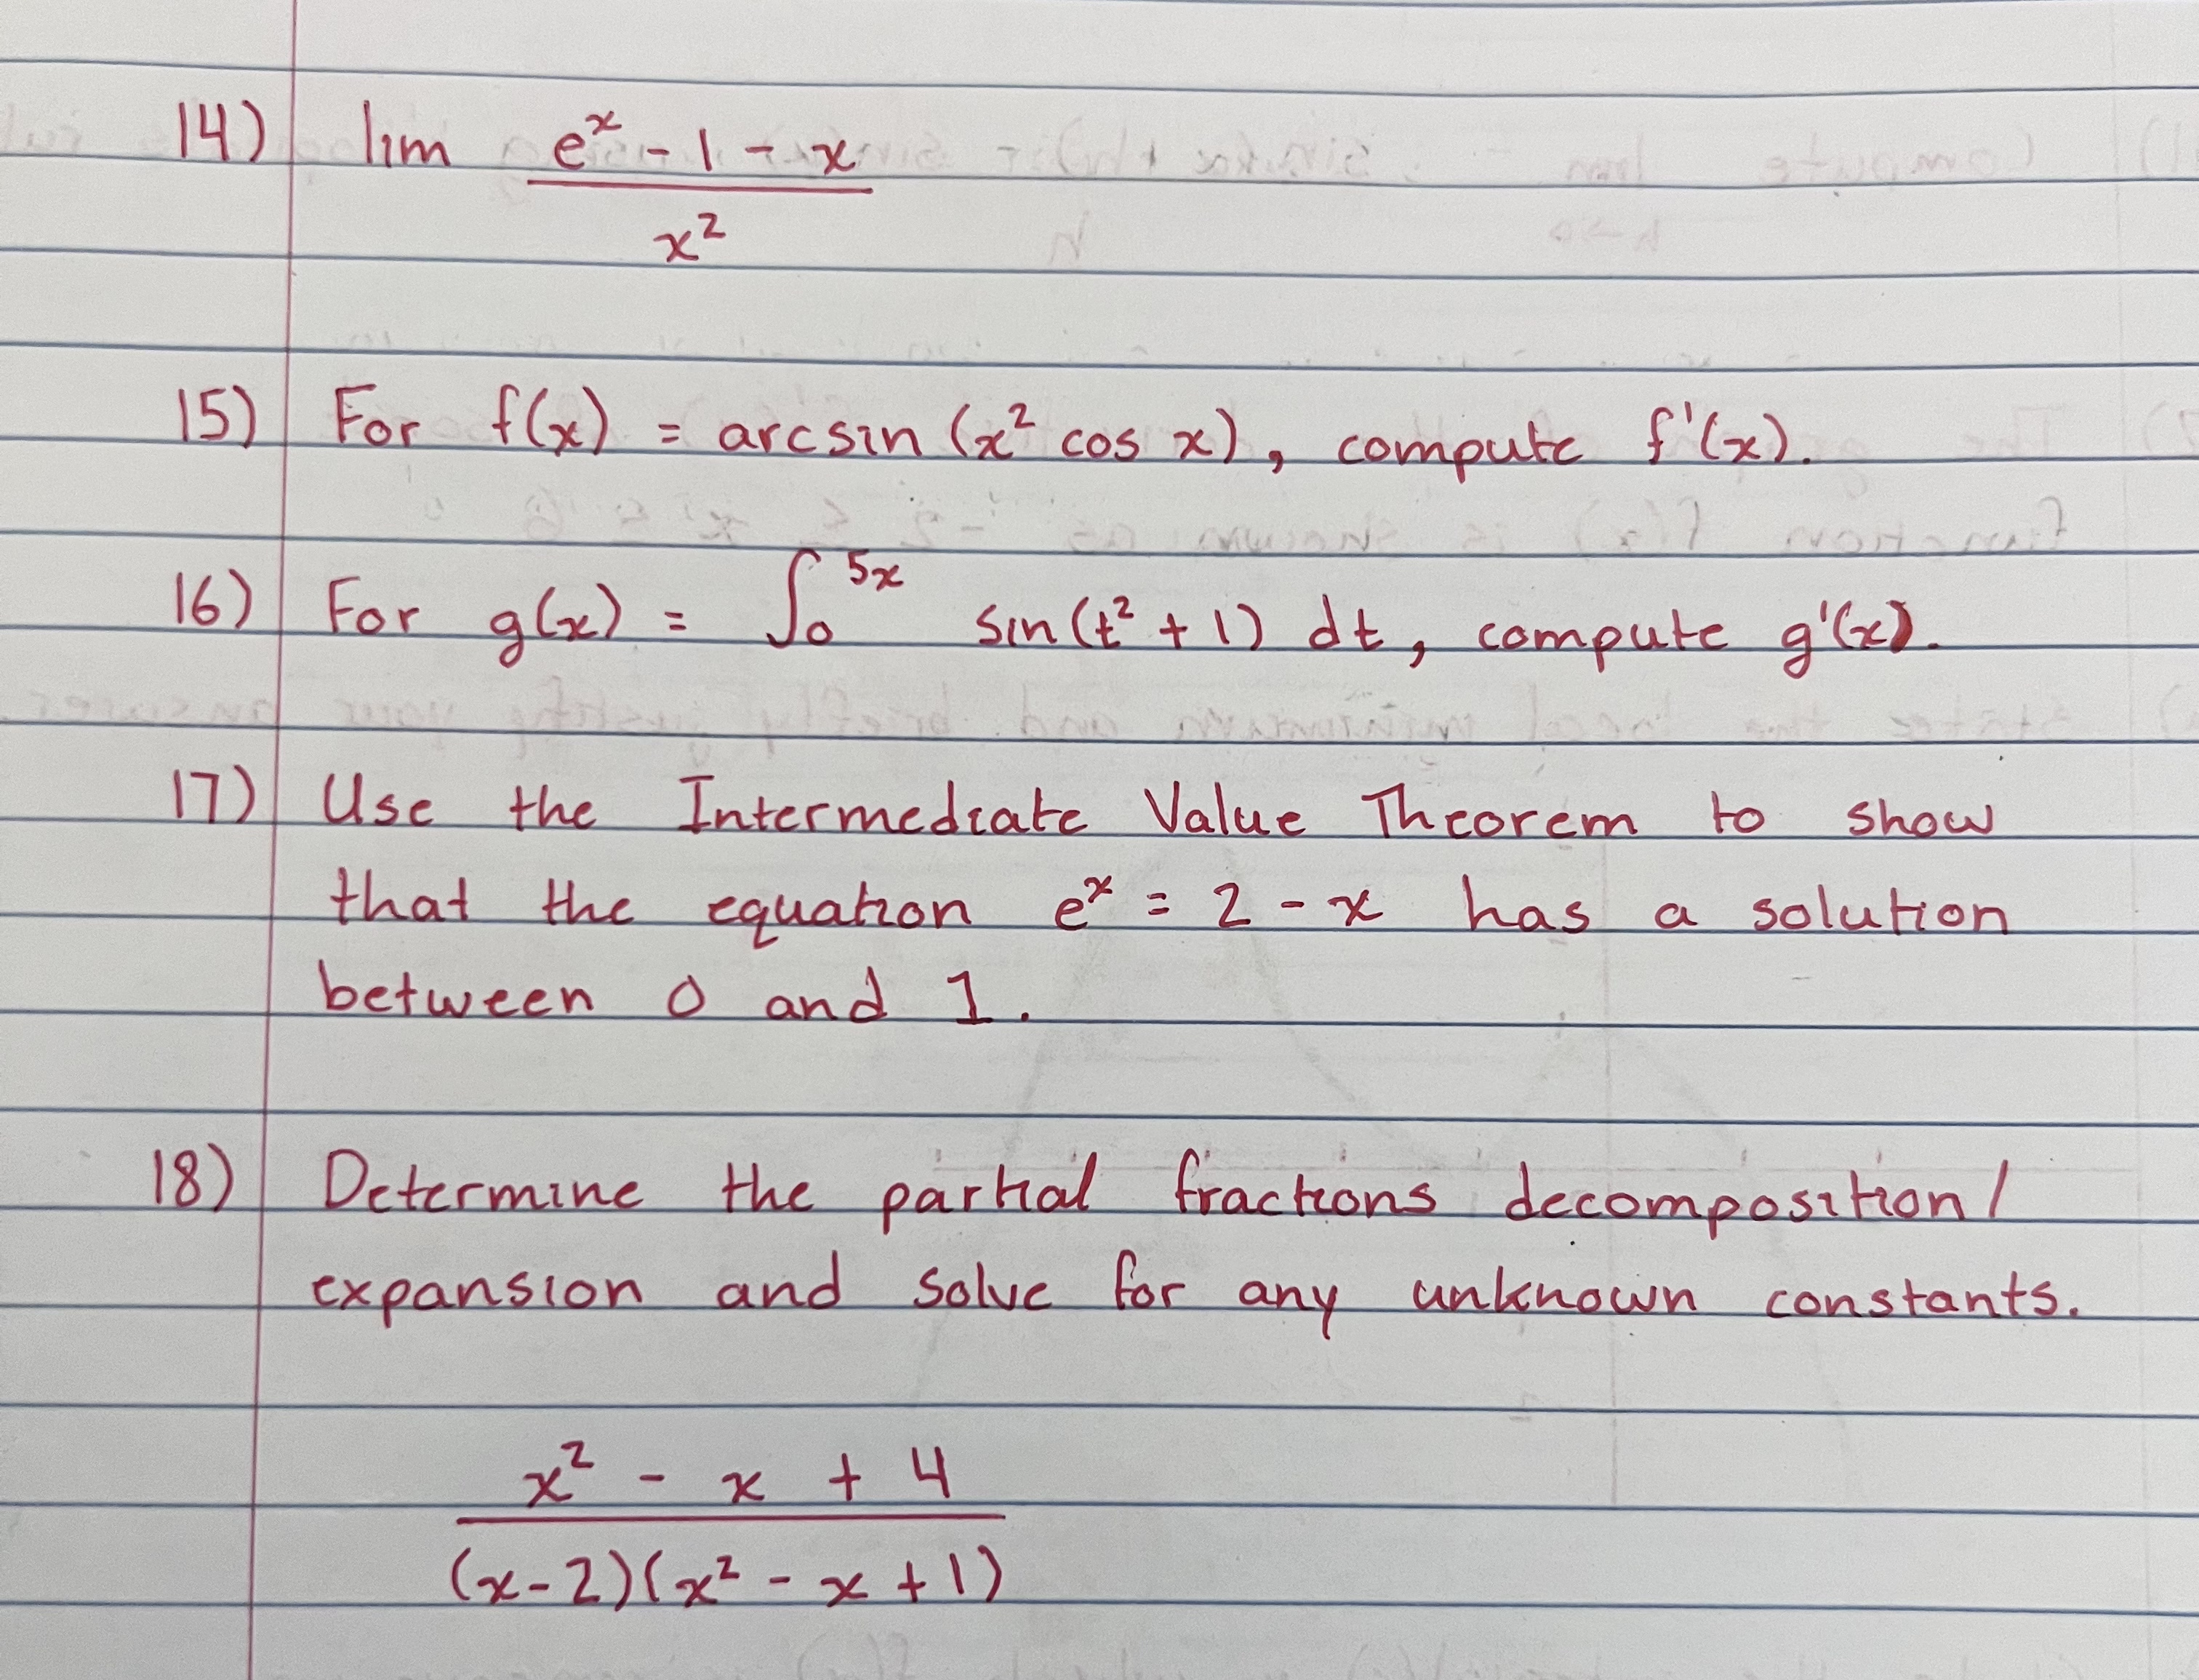 14) lim (e^x - 1 - x) / x^2
15) For f(x) = arcsin (x^2 cos x), compute f'(x).
16) For g(x) = ∫_0^{5x} sin(t^2 + 1) dt, compute g'(x).
17) Use the Intermediate Value Theorem to show
that the equation e^x = 2 - x has a solution
between 0 and 1.
18) Determine the partial fractions decomposition/
expansion and solve for any unknown constants.
(x^2 - x + 4) / ((x-2)(x^2 - x + 1))